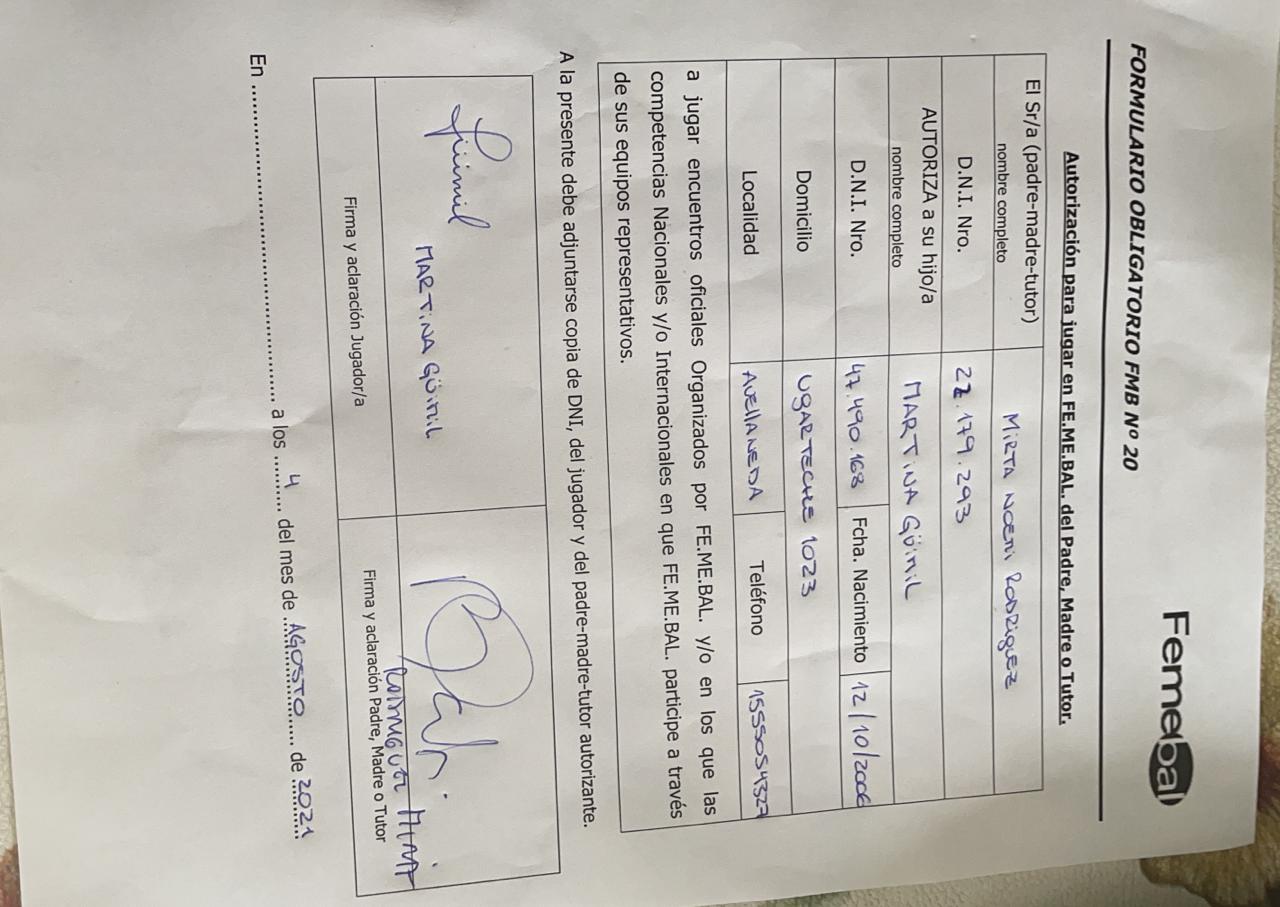 Femebal
FORMULARIO OBLIGATORIO FMB Nº 20
Autorización para jugar en FE.ME.BAL. del Padre, Madre o Tutor.
El Sr/a (padre-madre-tutor) MIRTA NOEMI RODRIGUEZ
nombre completo
D.N.I. Nro. 22.179.293
AUTORIZA a su hijo/a MARTINA GÜIMIL
nombre completo
D.N.I. Nro. 47.490.168 Fcha. Nacimiento 12/10/2006
Domicilio UGARTECHE 1023
Localidad AVELLANEDA Teléfono 1555054327
a jugar encuentros oficiales Organizados por FE.ME.BAL. y/o en los que las
competencias Nacionales y/o Internacionales en que FE.ME.BAL. participe a través
de sus equipos representativos.
A la presente debe adjuntarse copia de DNI, del jugador y del padre-madre-tutor autorizante.
Güimil
MARTINA GÜIMIL RODRIGUEZ MIRTA
Firma y aclaración Jugador/a Firma y aclaración Padre, Madre o Tutor
En ........................................ a los ....4.... del mes de AGOSTO de 2021